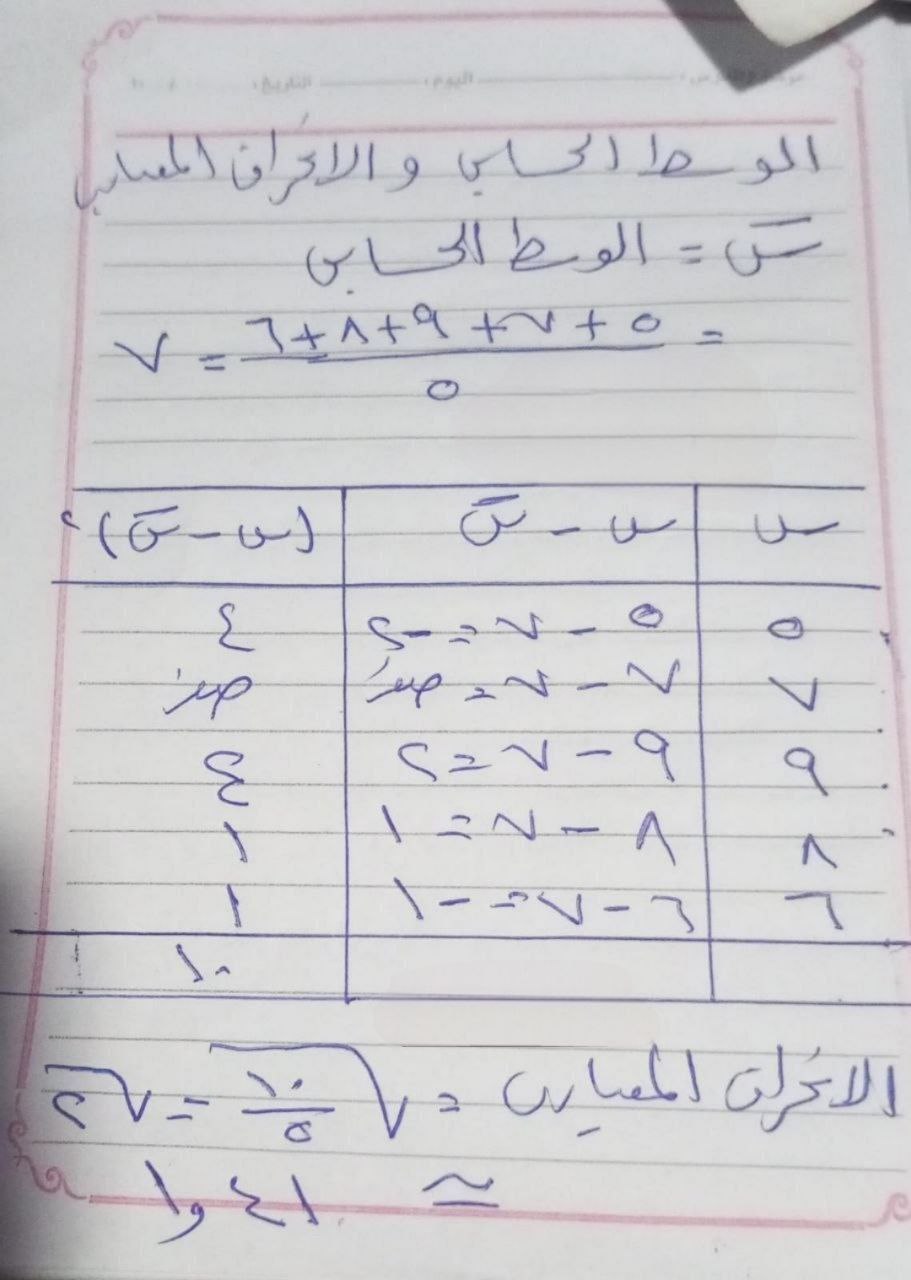 اليوم: التاريخ:
الوسط الحسابي والانحراف المعياري
س̄ = الوسط الحسابي
= ٥ + ٧ + ٩ + ٨ + ٦ / ٥ = ٧
س | س - س̄ | (س - س̄)٢
٥ | ٥ - ٧ = -٢ | ٤
٧ | ٧ - ٧ = صفر | صفر
٩ | ٩ - ٧ = ٢ | ٤
٨ | ٨ - ٧ = ١ | ١
٦ | ٦ - ٧ = -١ | ١
١٠
الانحراف المعياري = √١٠/٥ = √٢
≃ ١,٤١